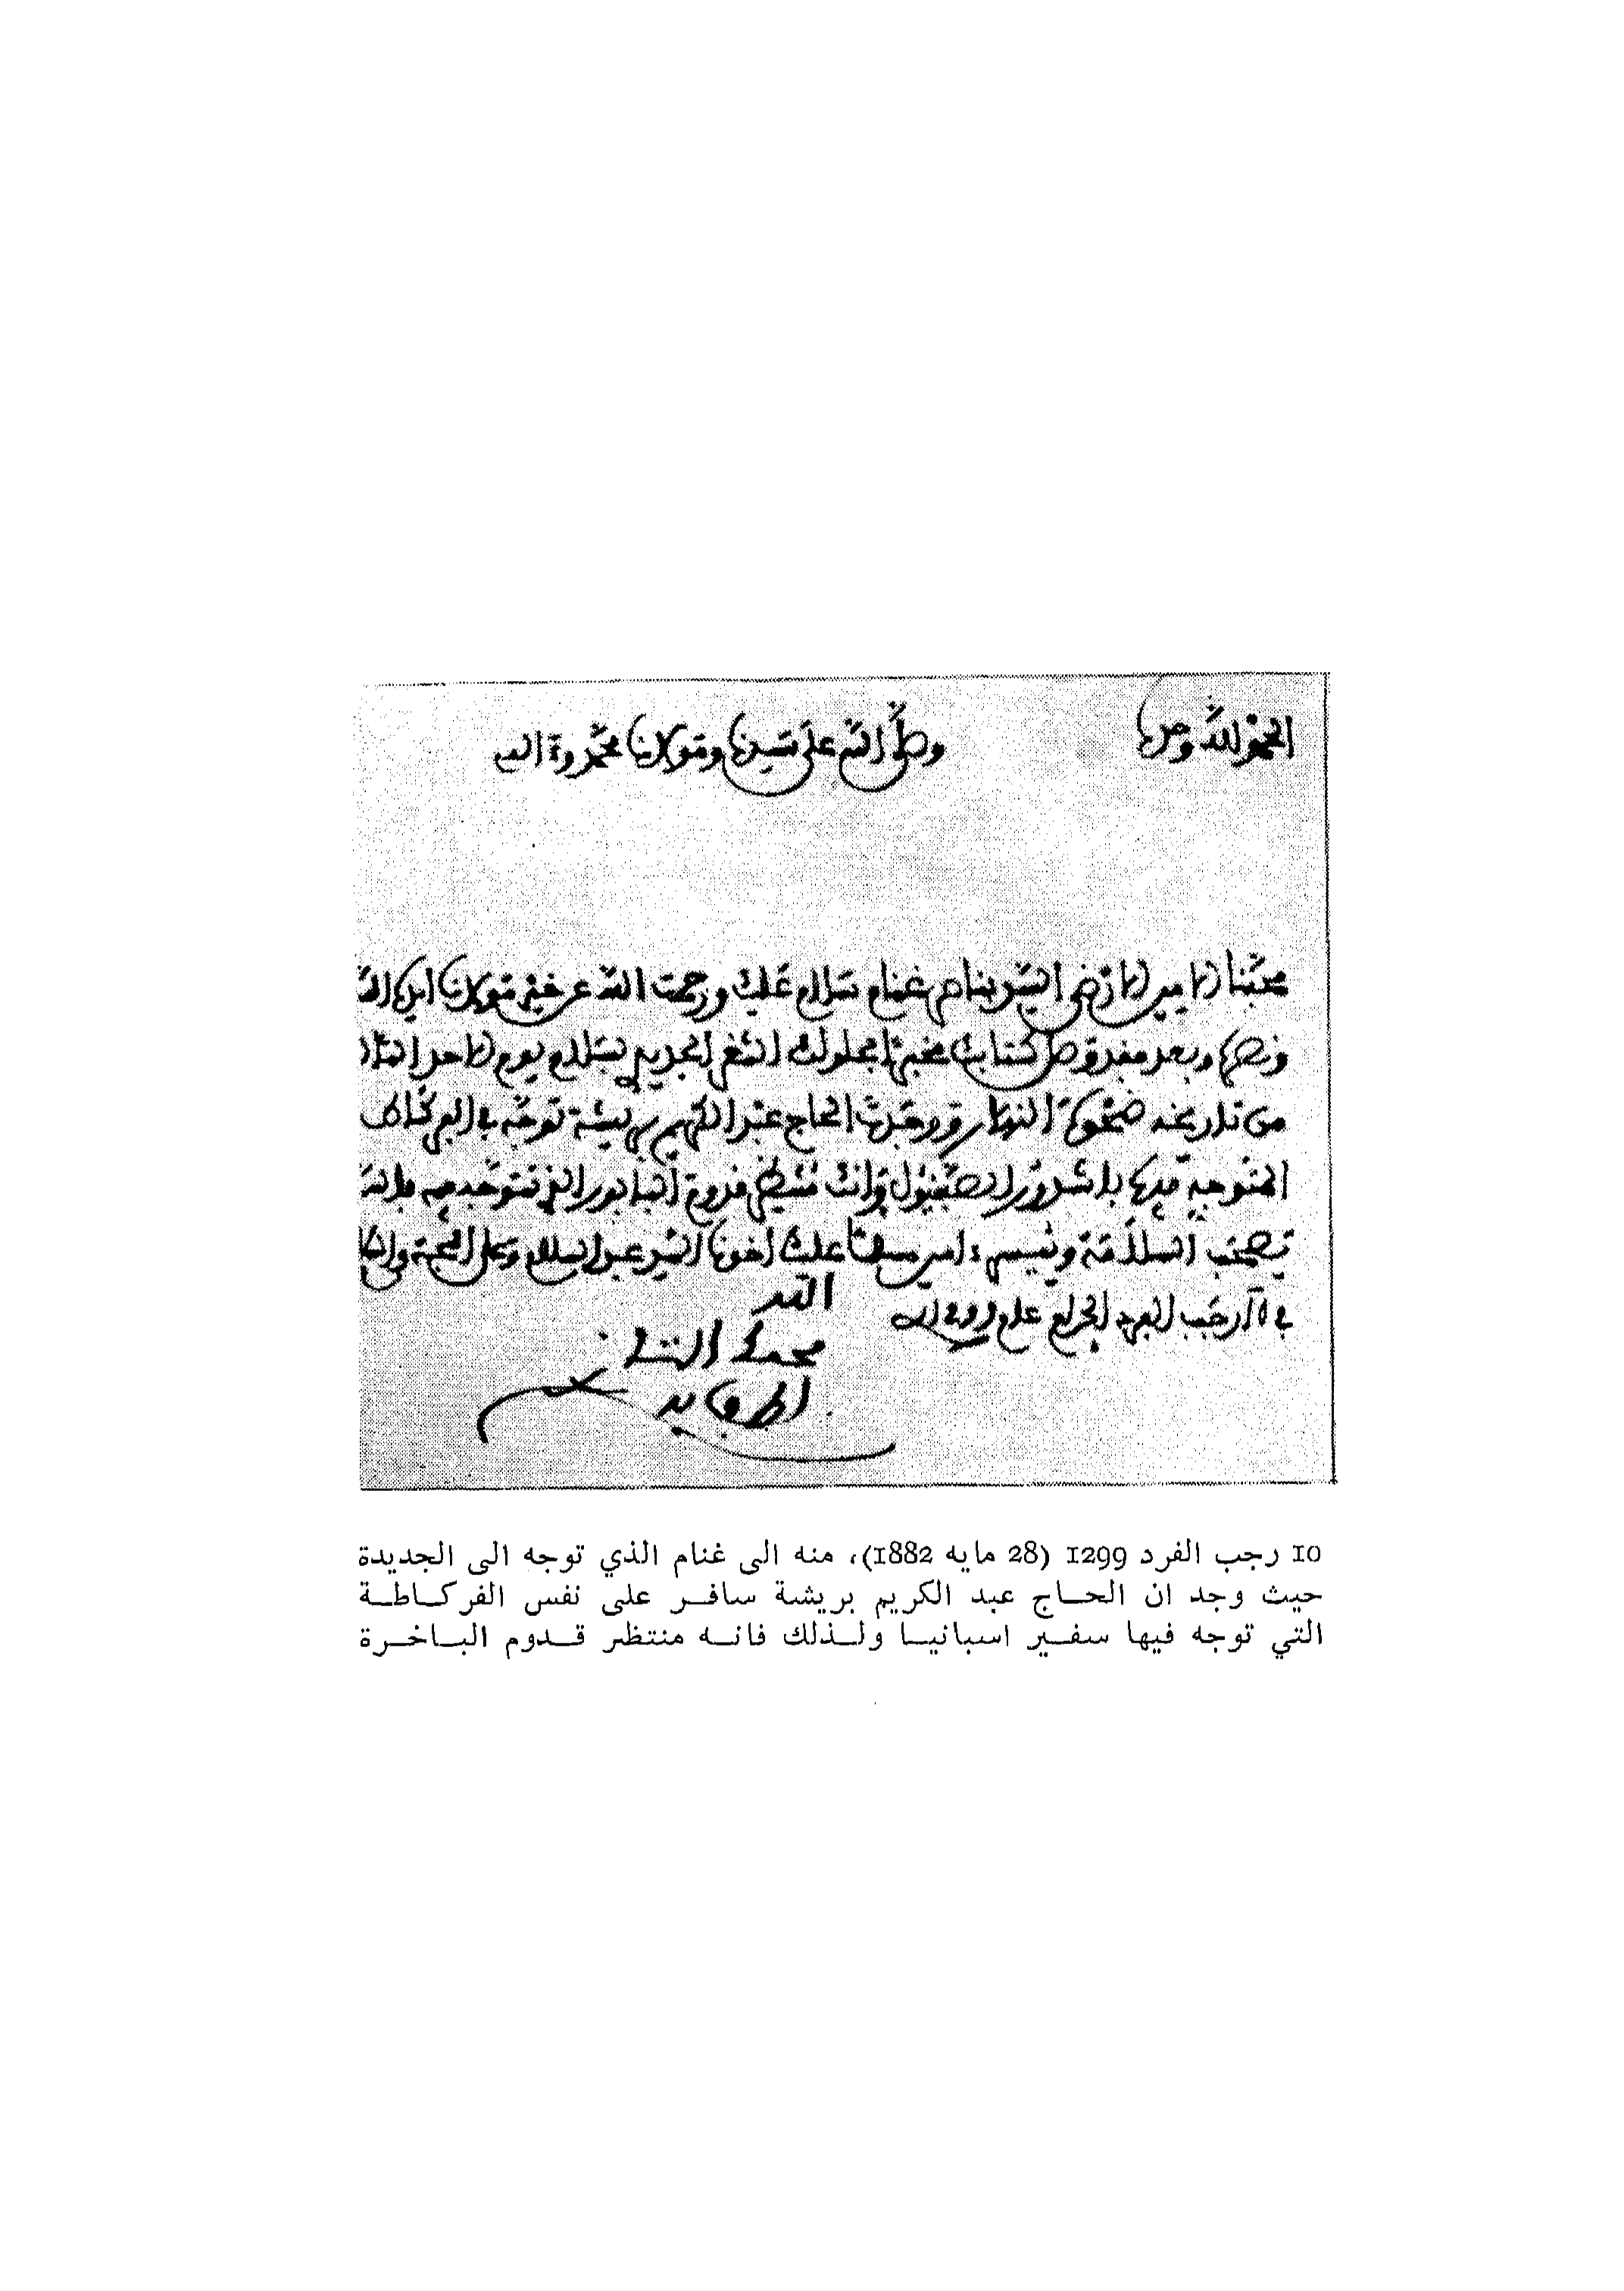 الحمد لله وحده
وصلى الله على سيدنا ومولانا محمد وءاله
محبنا الامير الارضى السيد بناصر غنام سلام عليك ورحمت الله عن خير مولانا ايده الله
ونصره وبعد فقد وصل كتابك مخبرا بحلولك الثغر الجديدي بسلام يوم الاحد
من تاريخه ضحوة النهار ووجدت الحاج عبد الكريم بريشة توجه في الفركاطة
المتوجه فيها باشدور الاصبنيول وانك منتظر قدوم البابور الذي تتوجه فيه فالله
يصحب السلامة وييسر ءامين يسلم عليك اخونا السيد عبد السلام وعلى المحبة والسلام
في رجب الفرد الحرام عام 1299
محمد
10 رجب الفرد 1299 (28 مايه 1882)، منه الى غنام الذي توجه الى الجديدة
حيث وجد ان الحاج عبد الكريم بريشة سافر على نفس الفركاطة
التي توجه فيها سفير اسبانيا ولذلك فانه منتظر قدوم الباخرة